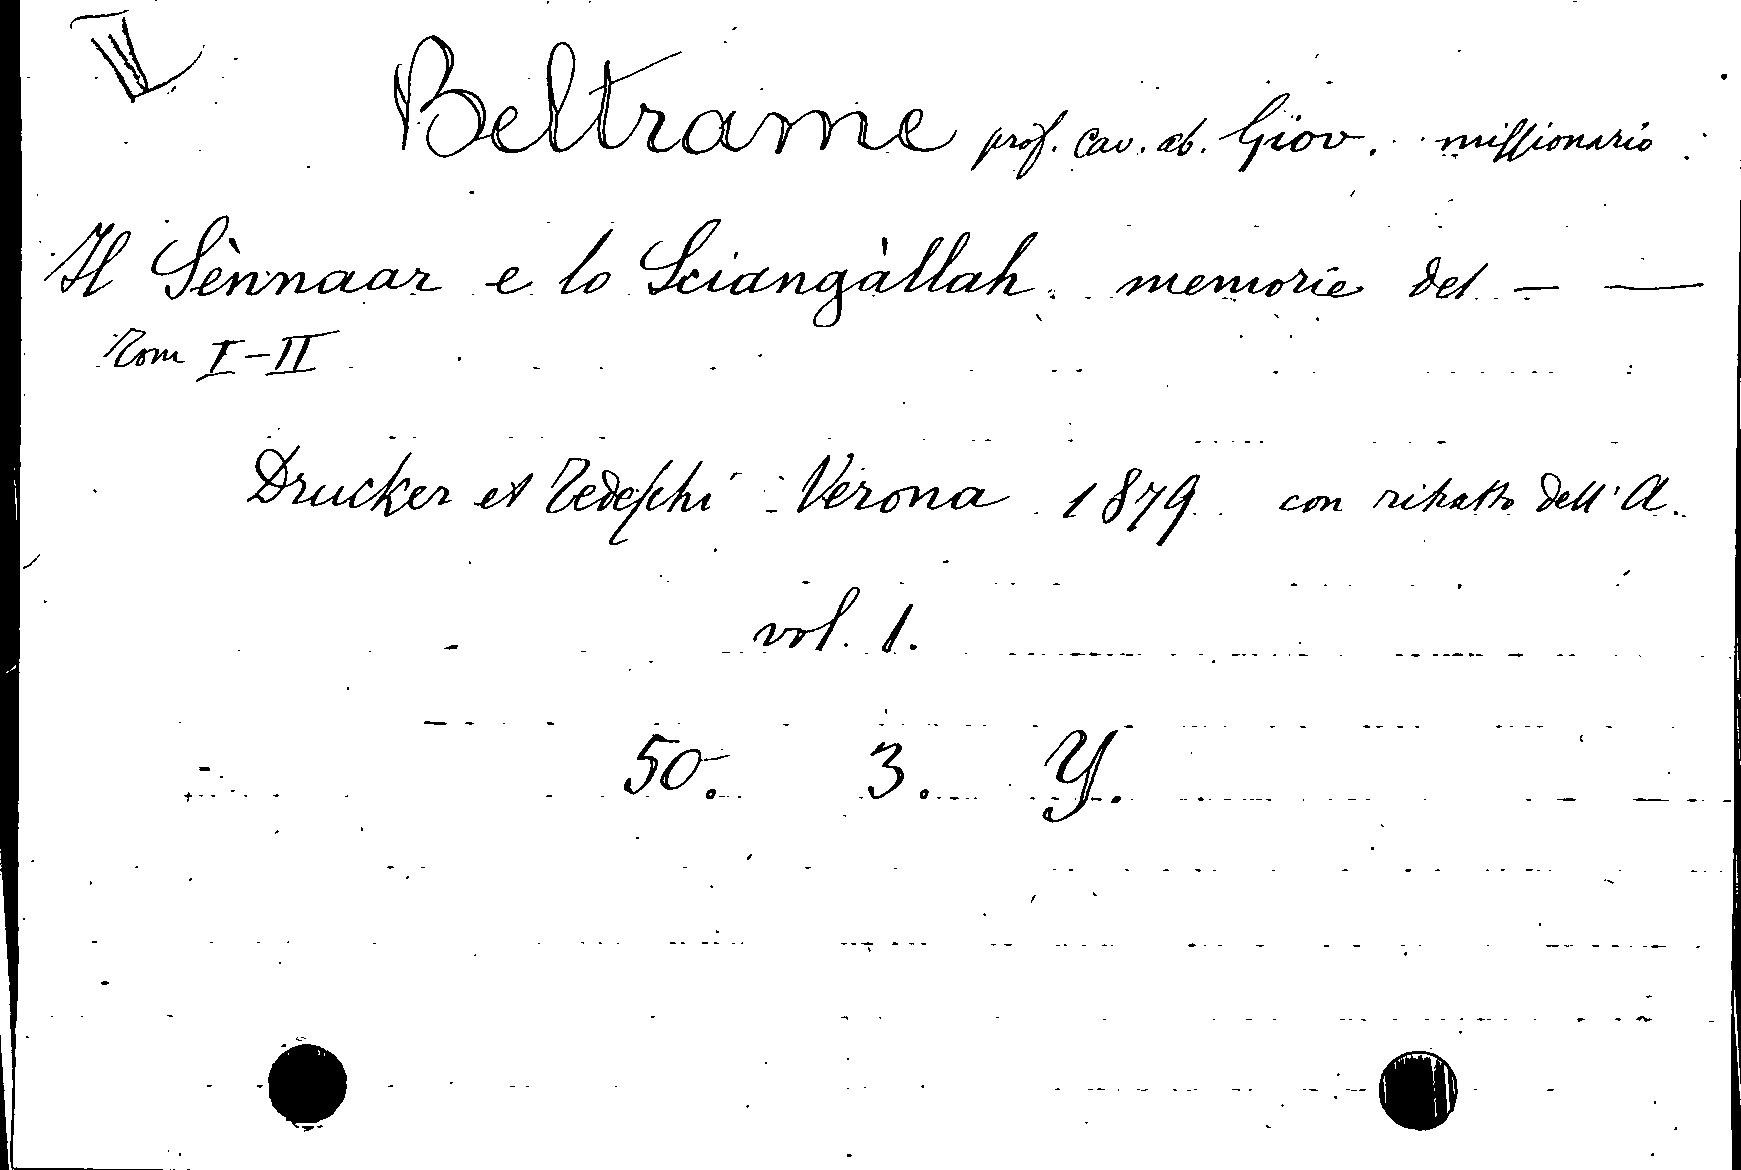 Beltrame prof. cav. ab. Giov. missionario
Il Sènnaar e lo Sciangàllah memorie del — —
Tom I-II
Drucker et Tedeschi Verona 1879 con ritratto dell'A.
vol. 1.
50. 3. Y.